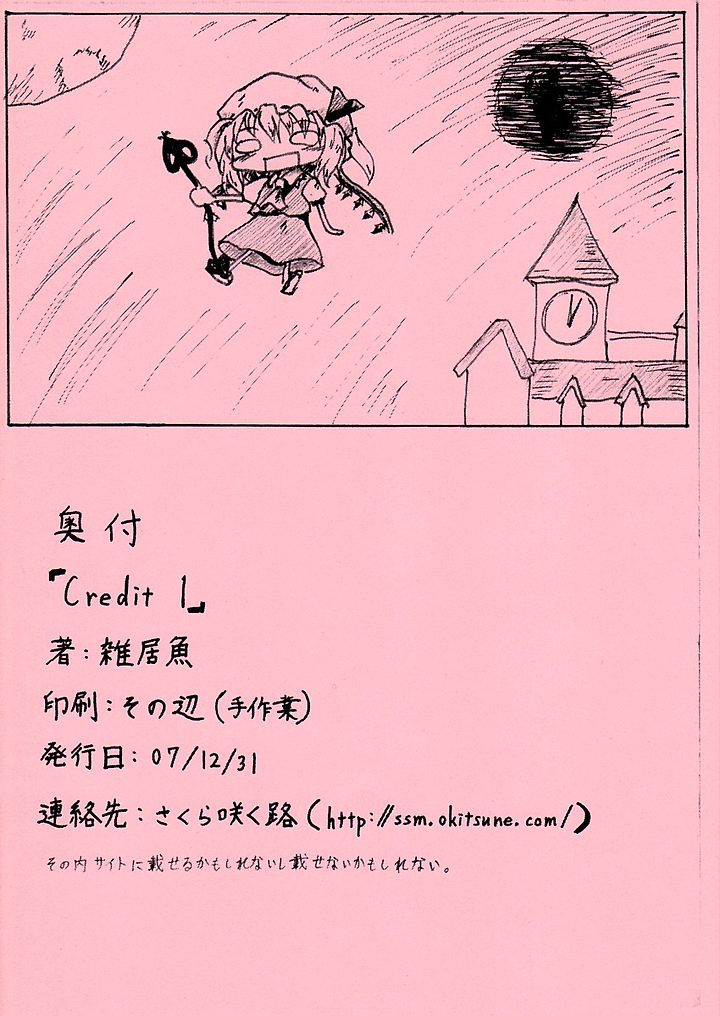 奥付
『Credit 1』
著：雑居魚
印刷：その辺(手作業)
発行日：07/12/31
連絡先：さくら咲く路(http://ssm.okitsune.com/)
その内サイトに載せるかもしれないし載せないかもしれない。